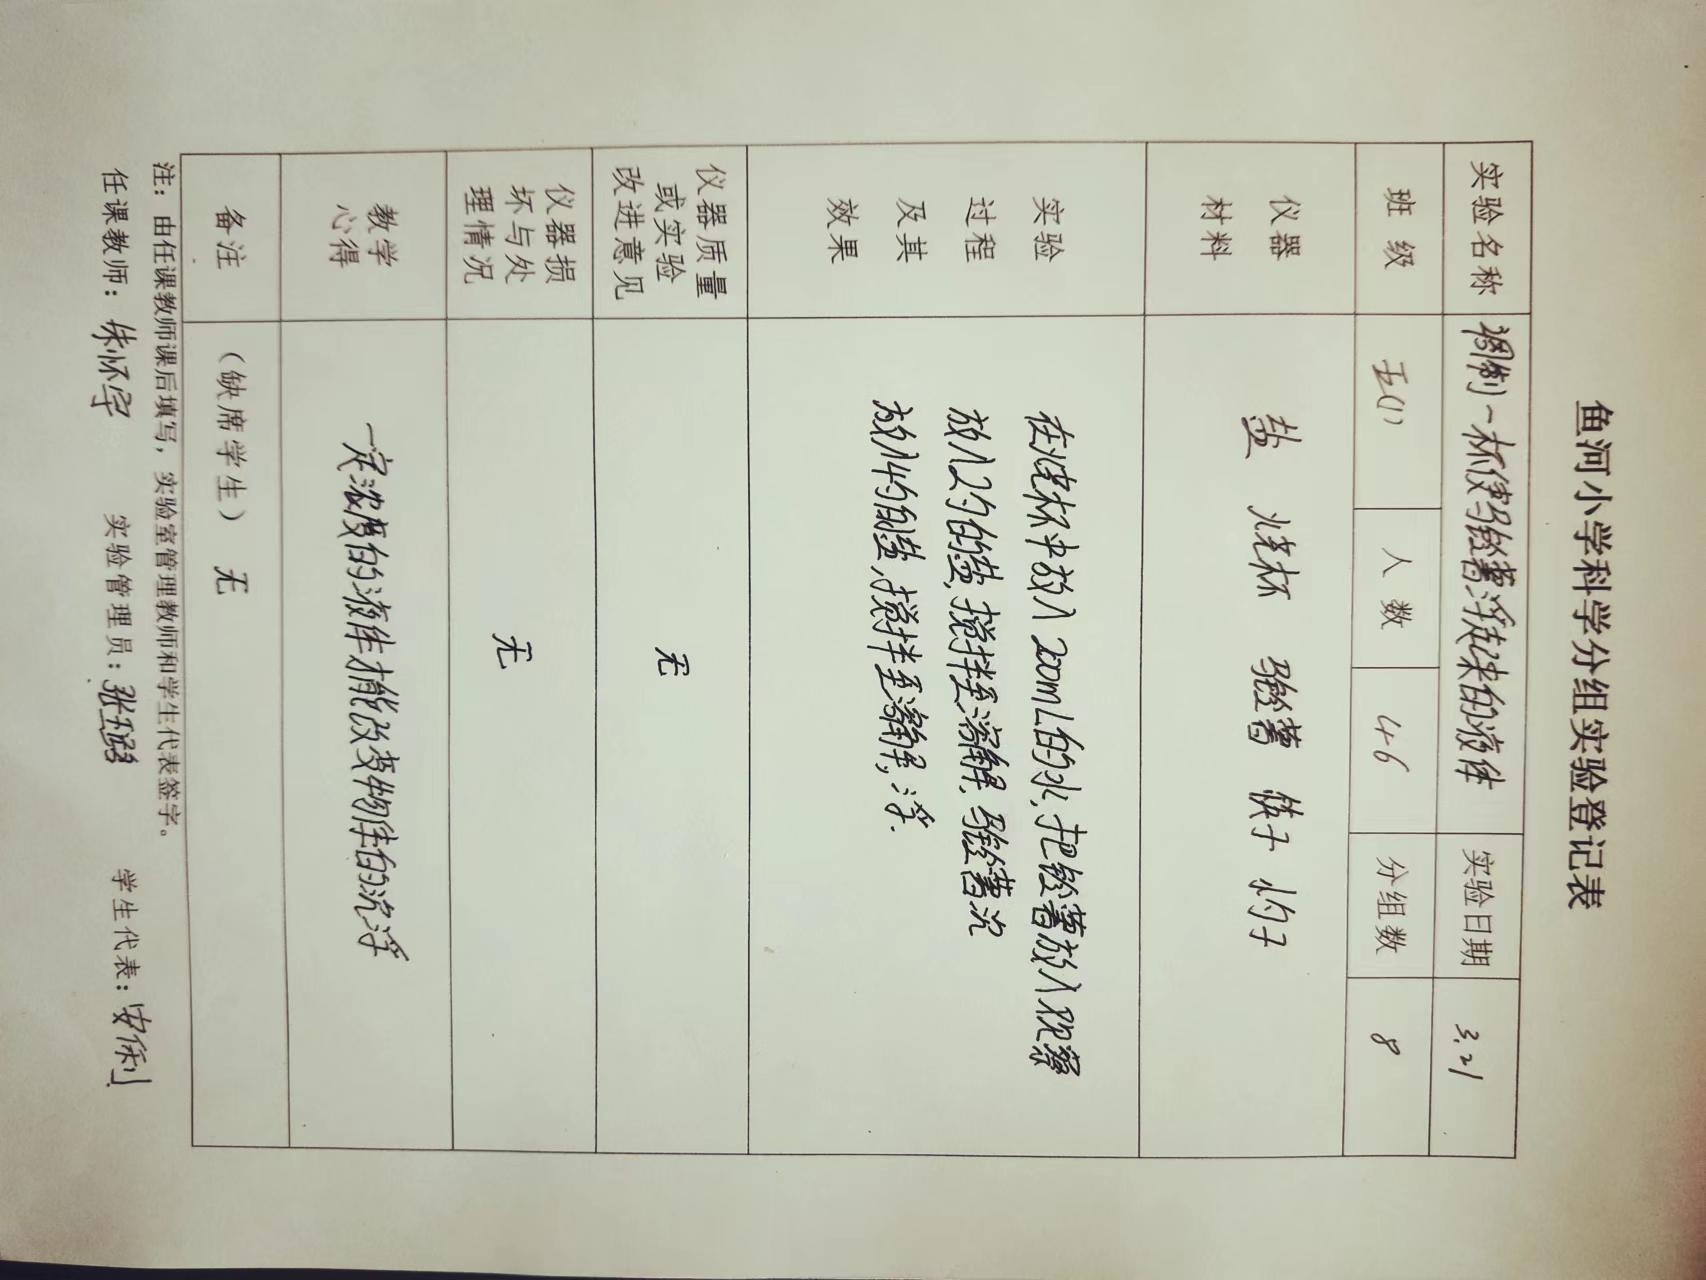 鱼河小学科学分组实验登记表
实验名称 调制一杯使马铃薯浮起来的液体 实验日期 3.21
班 级 五(1) 人 数 46 分组数 8
仪器
材料
盐 烧杯 马铃薯 筷子 小勺子
实验
过程
及其
效果
在烧杯中放入200mL的水,把马铃薯放入观察
放入2勺的盐,搅拌至溶解,马铃薯沉
放入4勺的盐,搅拌至溶解,浮.
仪器质量
或实验
改进意见
无
仪器损
坏与处
理情况
无
教学
心得
一定浓度的液体才能改变物体的沉浮
备注 (缺席学生) 无
注:由任课教师课后填写,实验室管理教师和学生代表签字。
任课教师:朱怀宇 实验管理员: 学生代表:安保利